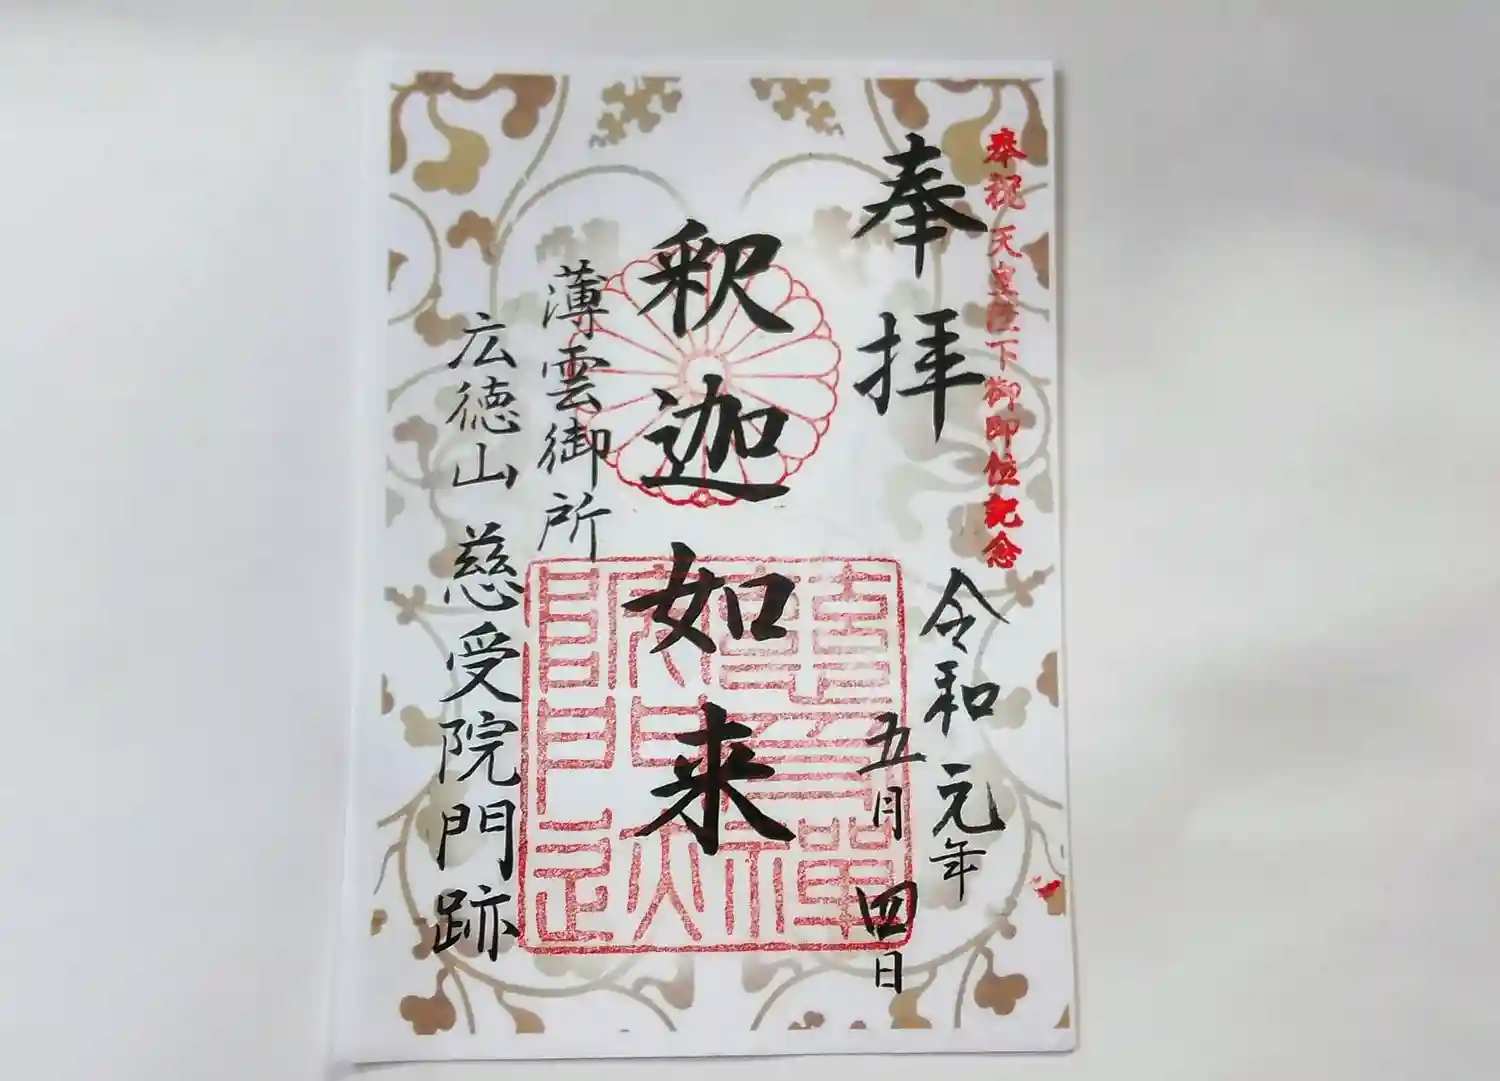 奉祝 天皇陛下御即位記念
奉拝
令和元年
五月四日
釈迦如来
薄雲御所
広徳山 慈受院門跡